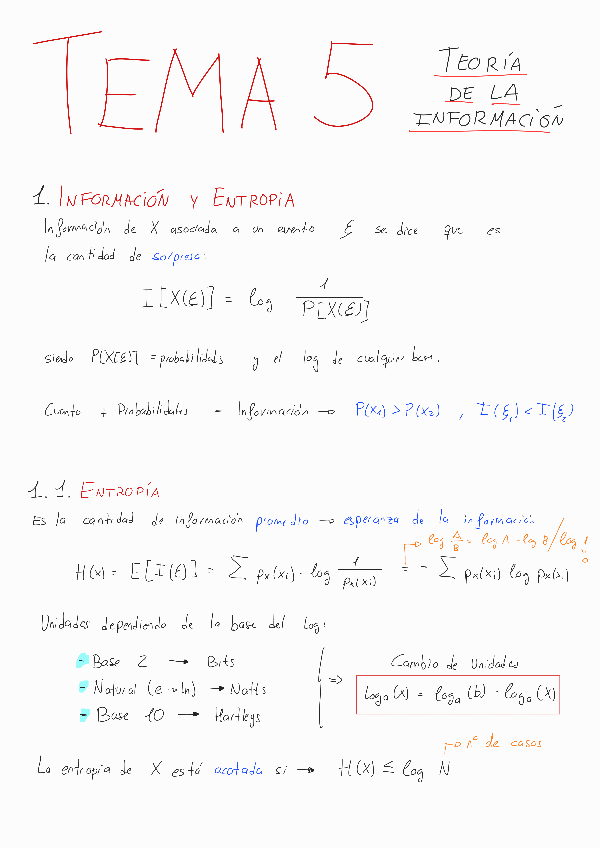 TEMA 5
TEORÍA
DE LA
INFORMACIÓN
1. INFORMACIÓN Y ENTROPIA
Información de X asociada a un evento ξ se dice que es
la cantidad de sorpresa:
I[X(ξ)] = log 1 / P[X(ξ)]
siendo P[X(ξ)] = probabilidades y el log de cualquier base.
Cuanto + Probabilidades - Información → P(x1) > P(x2) , I(ξ1) < I(ξ2)
1.1. ENTROPÍA
Es la cantidad de información promedio → esperanza de la información
→ log A/B = log A - log B / log 1 = 0
H(x) = E[I(ξ)] = Σ px(xi) · log 1 / px(xi) = - Σ px(xi) log px(xi)
Unidades dependiendo de la base del log:
- Base 2 → Bits
- Natural (e → ln) → Natts
- Base 10 → Hartleys
⇒ Cambio de Unidades
loga(x) = loga(b) · loga(x)
→ nº de casos
La entropia de X está acotada si → H(X) ≤ log N